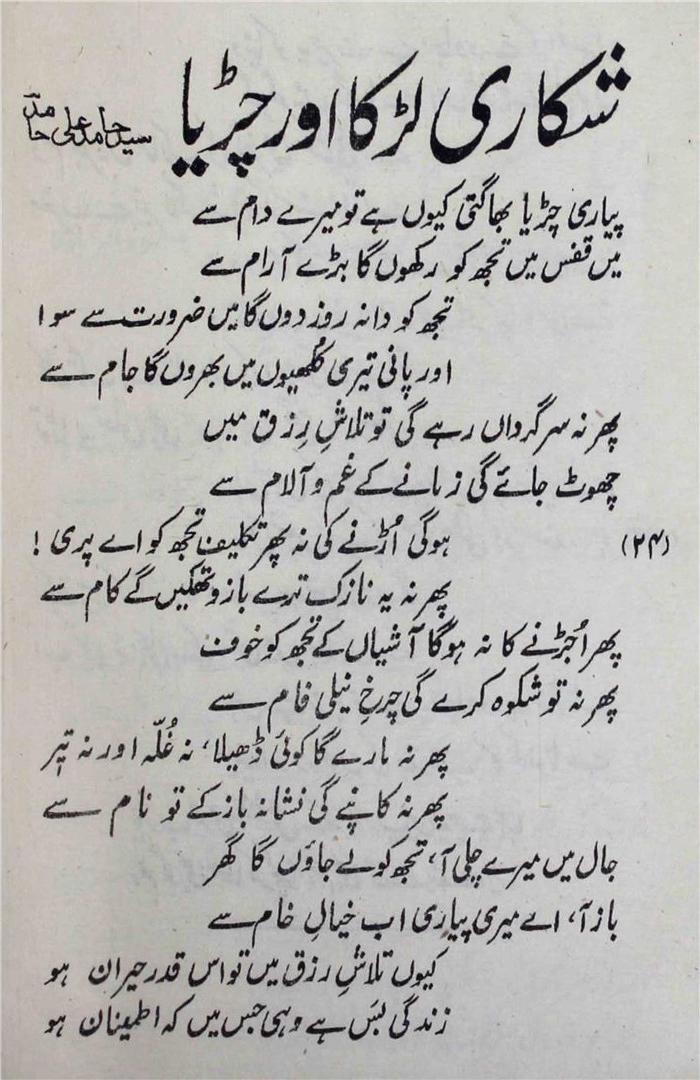 شکاری لڑکا اور چڑیا
سید حامد علی حامد
پیاری چڑیا بھاگتی کیوں ہے تو میرے دام سے
میں قفس میں تجھ کو رکھوں گا بڑے آرام سے
تجھ کو دانہ روز دوں گا میں ضرورت سے سوا
اور پانی تیری کُلھیوں میں بھروں گا جام سے
پھر نہ سرگرداں رہے گی تو تلاشِ رِزق میں
چھوٹ جائے گی زمانے کے غم و آلام سے
(۲۴) ہوگی اُڑنے کی نہ پھر تکلیف تجھ کو اے پری !
پھر نہ یہ نازک ترے بازو تھکیں گے کام سے
پھر اُجڑنے کا نہ ہوگا آشیاں کے تجھ کو خوف
پھر نہ تو شکوہ کرے گی چرخِ نیلی فام سے
پھر نہ مارے گا کوئی ڈھیلا، نہ غُلّہ اور نہ تیر
پھر نہ کانپے گی نشانہ باز کے تو نام سے
جال میں میرے چلی آ، تجھ کو لے جاؤں گا گھر
باز آ، اے میری پیاری اب خیالِ خام سے
کیوں تلاشِ رزق میں تو اس قدر حیران ہو
زندگی بسَ ہے وہی جس میں کہ اطمینان ہو